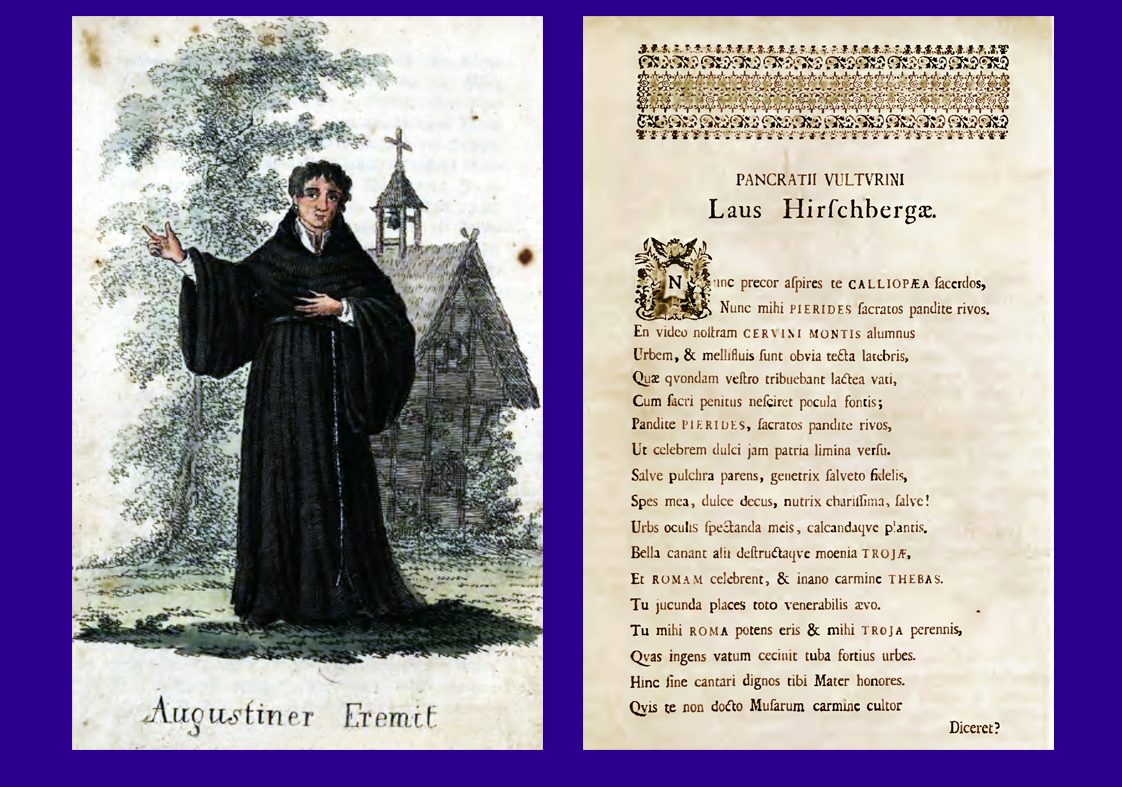 Augustiner Eremit
PANCRATII VULTVRINI
Laus Hirſchbergæ.
Nunc precor aſpires te CALLIOPÆA ſacerdos,
Nunc mihi PIERIDES ſacratos pandite rivos.
En video noſtram CERVINI MONTIS alumnus
Urbem, & mellifluis ſunt obvia tecta latebris,
Quæ qvondam veſtro tribuebant lactea vati,
Cum ſacri penitus neſciret pocula fontis;
Pandite PIERIDES, ſacratos pandite rivos,
Ut celebrem dulci jam patria limina verſu.
Salve pulchra parens, genetrix ſalveto fidelis,
Spes mea, dulce decus, nutrix chariſſima, ſalve!
Urbs oculis ſpectanda meis, calcandaqve plantis.
Bella canant alii deſtructaqve moenia TROJÆ,
Et ROMAM celebrent, & inano carmine THEBAS.
Tu jucunda places toto venerabilis ævo.
Tu mihi ROMA potens eris & mihi TROJA perennis,
Qvas ingens vatum cecinit tuba fortius urbes.
Hinc ſine cantari dignos tibi Mater honores.
Qvis te non docto Muſarum carmine cultor
Diceret?